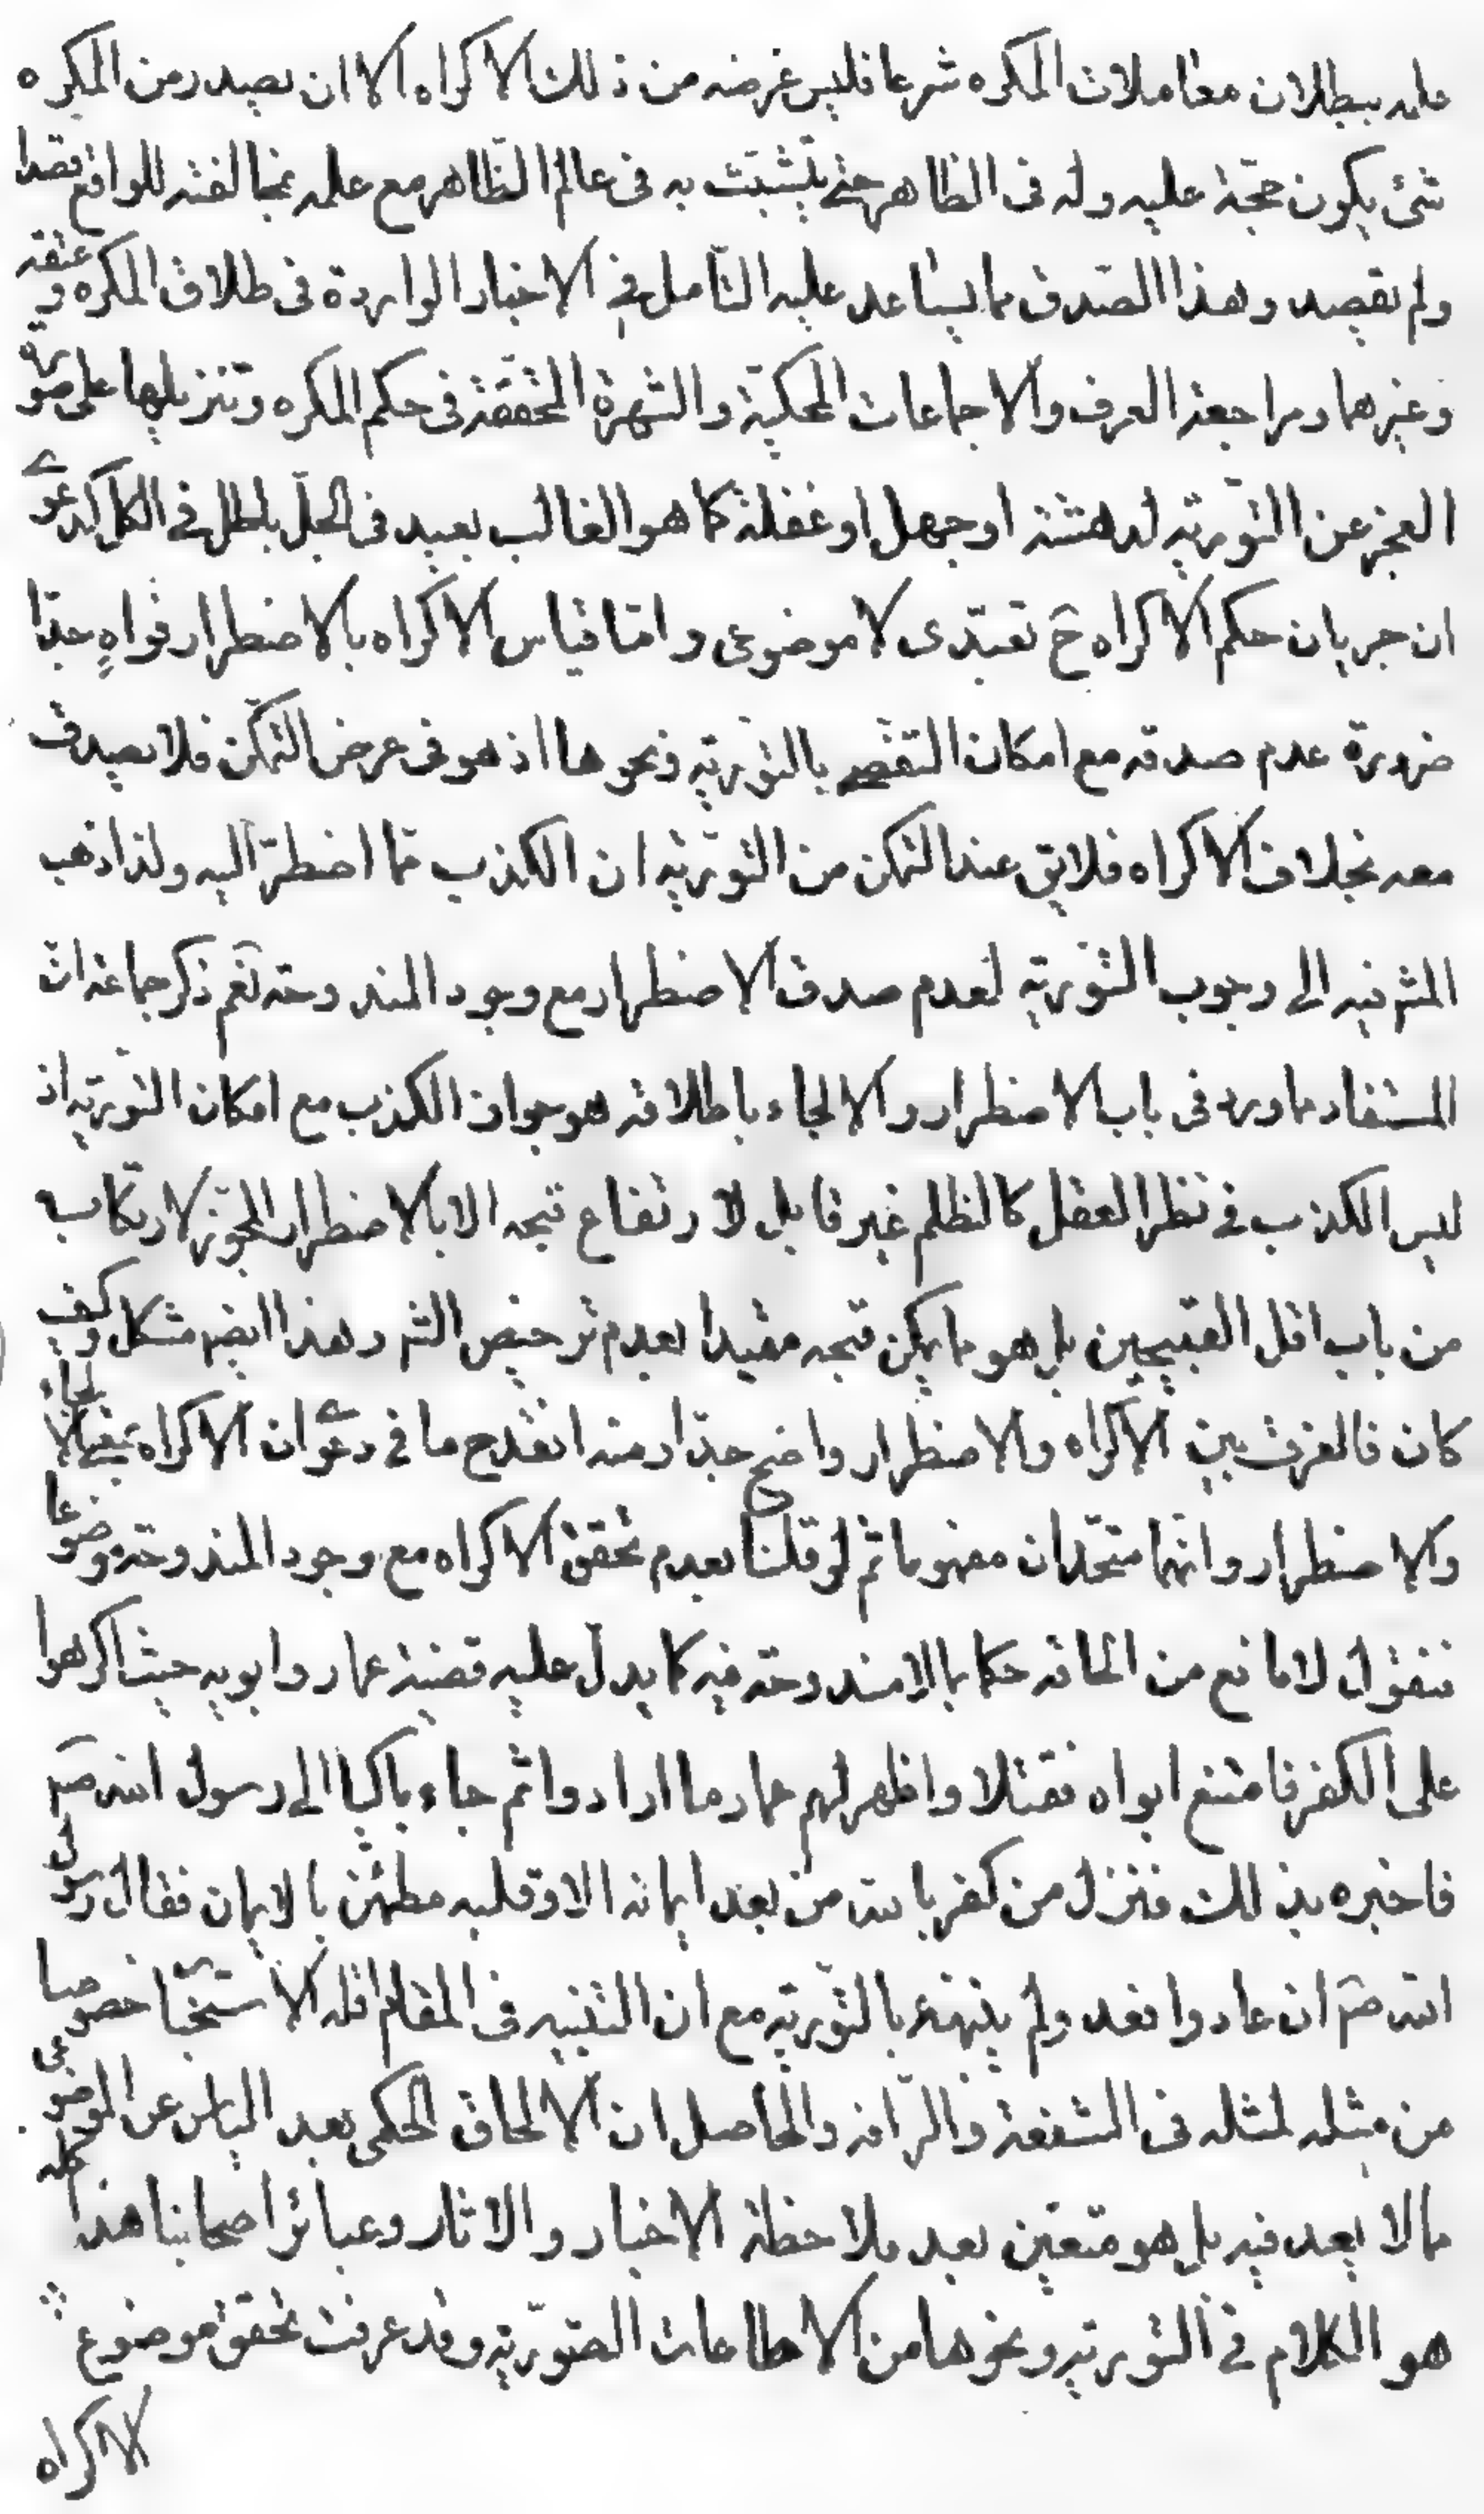 علمه ببطلان معاملات المكره شرعا فليس غرضه من ذلك الاكراه الا ان يصدر من المكره
شئ يكون حجّة عليه وله فى الظاهر حتى يتشبّث به فى عالم الظّاهر مع علمه بمخالفته للواقع قصدا
ولم يقصد وهذا الصّدق مما يساعد عليه التأمل فى الاخبار الواردة فى طلاق المكره وعتقه
وغيرهما ومراجعة العرف والاجماعات المحكيّة والشهرة المحققة فى حكم المكره وتنزيلها على صورة
العجز عن التّورية لدهشة او جهل او غفلة كما هو الغالب بعيد فى الجلّ باطل فى الكل كدعوى
ان جريان حكم الاكراه ح تعبّدى لا موضوعى وامّا قياس الاكراه بالاضطرار فواهٍ جدّا
ضرورة عدم صدقه مع امكان التفصى بالتّورية ونحوها اذ هو فى عرض التمكّن فلا يصدق
معه بخلاف الاكراه فلا يق عند التمكن من التّورية ان الكذب ممّا اضطرّ اليه ولذا ذهب
المش فيه الى وجوب التّورية لعدم صدق الاضطرار مع وجود المندوحة نعم ذكر جماعة انّ
المستفاد مما ورد فى باب الاضطرار والالجاء باطلاقه هو جواز الكذب مع امكان التّورية اذ
ليس الكذب فى نظر العقل كالظلم غير قابل لارتفاع قبحه الا بالاضطرار المجوّز لارتكاب
من باب اقل القبيحين بل هو مما يمكن قبحه مقيدا بعدم ترخيص الش وهذا ايضم مشكل وكيف
كان فالفرق بين الاكراه والاضطرار واضح جدّا ومنه انقدح ما فى دعوى ان الاكراه بمعنى الالجاء
والاضطرار وانهما متّحدان مفهوما ثم لو قلنا بعدم تحقق الاكراه مع وجود المندوحة موضوعا
فنقول لا مانع من الحاقه حكما بما لا مندوحة فيه كما يدلّ عليه قضية عمار وابويه حيث اكرهوا
على الكفر فامتنع ابواه فقتلا واظهر لهم عمار ما ارادوا ثم جاء باكيا الى رسول الله صم
فاخبره بذلك فنزل من كفر بالله من بعد ايمانه الا وقلبه مطمئن بالايمان فقال رسول
الله صم ان عادوا فعد ولم ينبّهه بالتّورية مع ان التنبيه فى المقام اقله الاستحبا خصوصا
من مثله لمثله فى الشفقة والرّافه والحاصل ان الالحاق الحكمى بعد الياس عن الموضوعى
مما لا بعد فيه بل هو متعيّن بعد ملاحظة الاخبار والاثار وعبائر اصحابنا هذا كله
هو الكلام فى التّورية ونحوها من الاطاعات الصّوريّة وقد عرفت تحقق موضوع
الاكراه